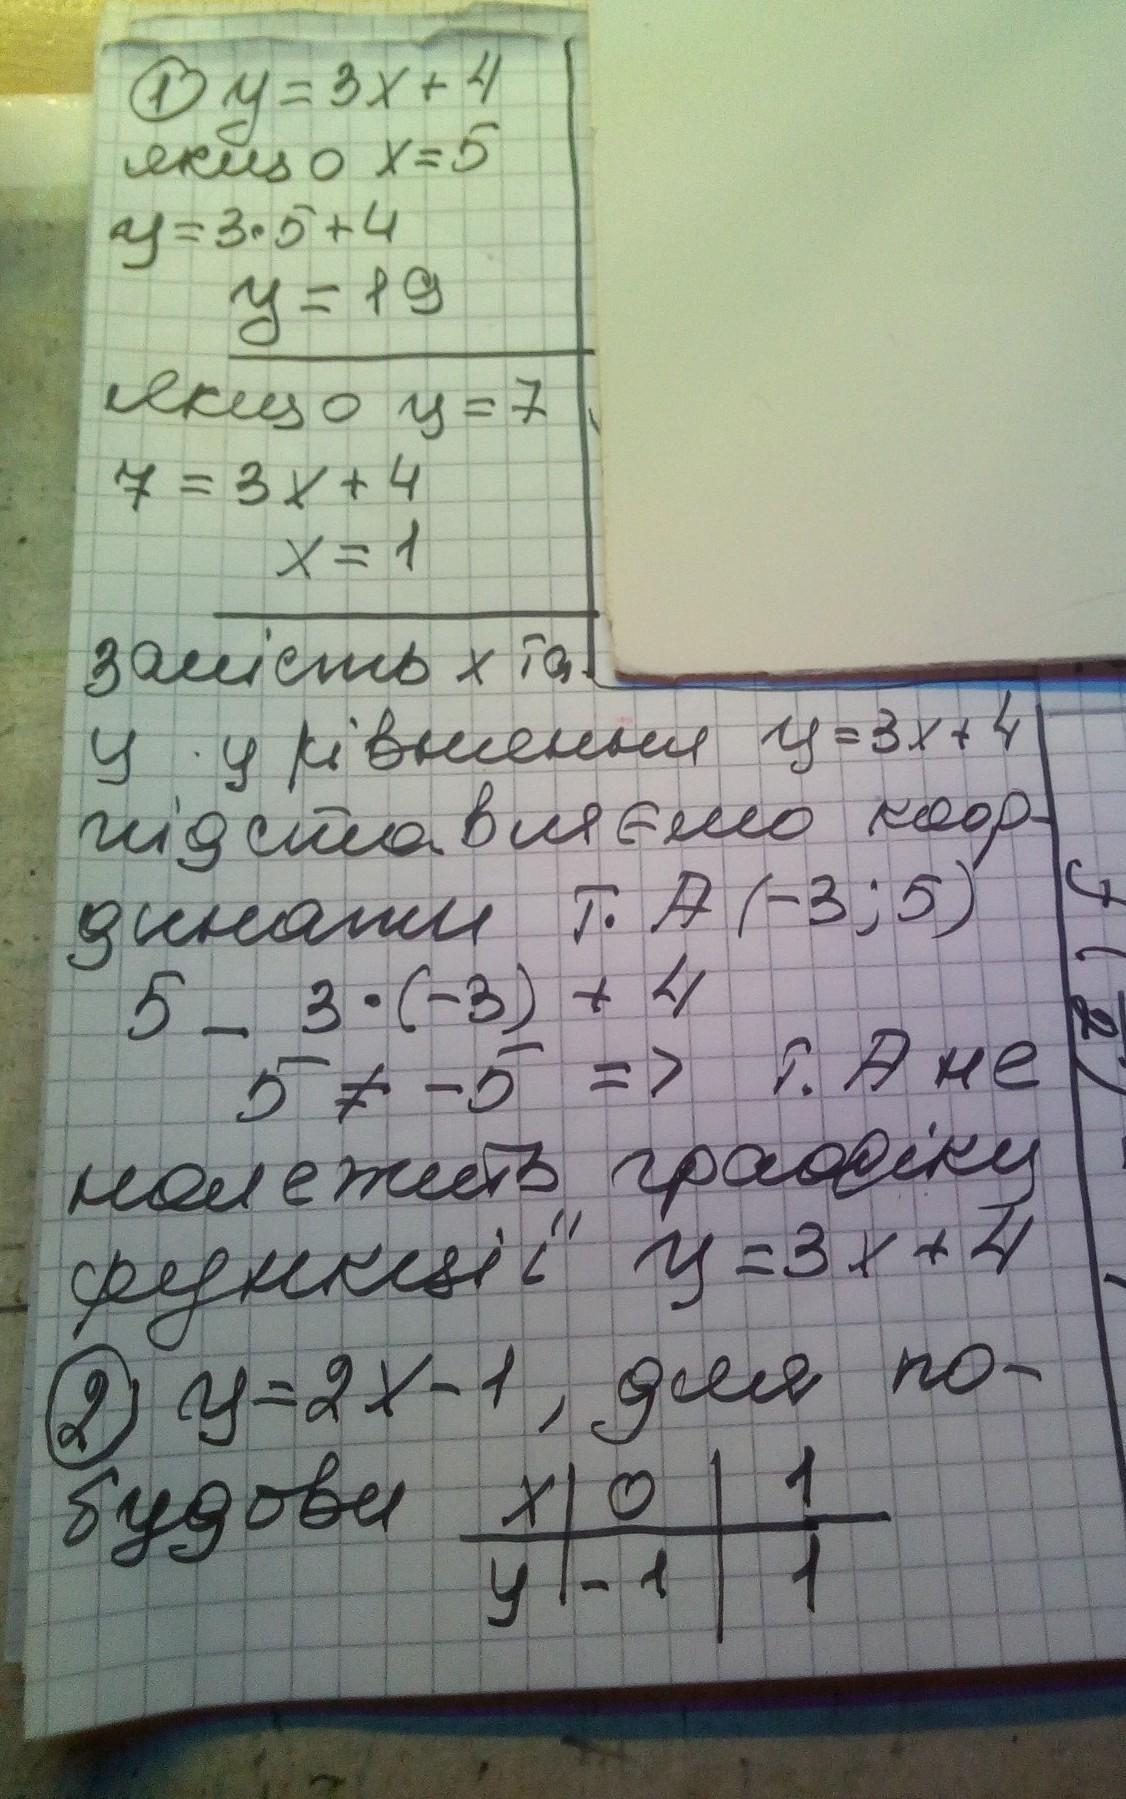 ① y=3x+4
якщо x=5
y=3·5+4
y=19
Якщо y=7
7=3x+4
x=1
замість x та
y у рівняння y=3x+4
підставляємо коор-
динати т. A(-3;5)
5 _ 3·(-3)+4
5≠-5 => т. A не
належить графіку
функції y=3x+4
② y=2x-1, для по-
будови x | 0 | 1
y | -1 | 1